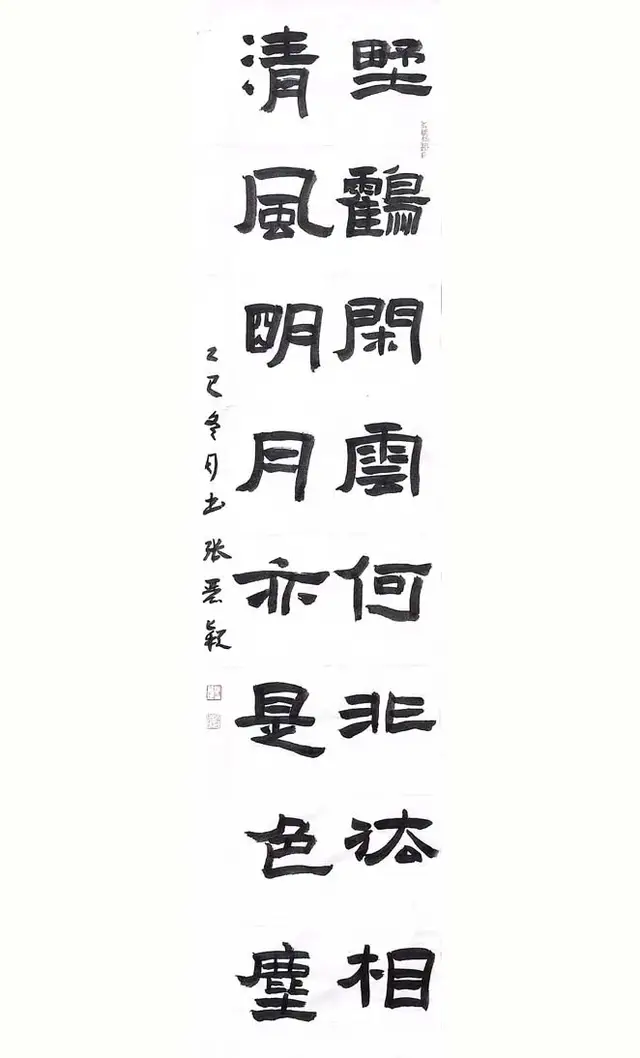 野鶴閑雲何非法相
清風明月亦是色塵
乙巳冬月书张